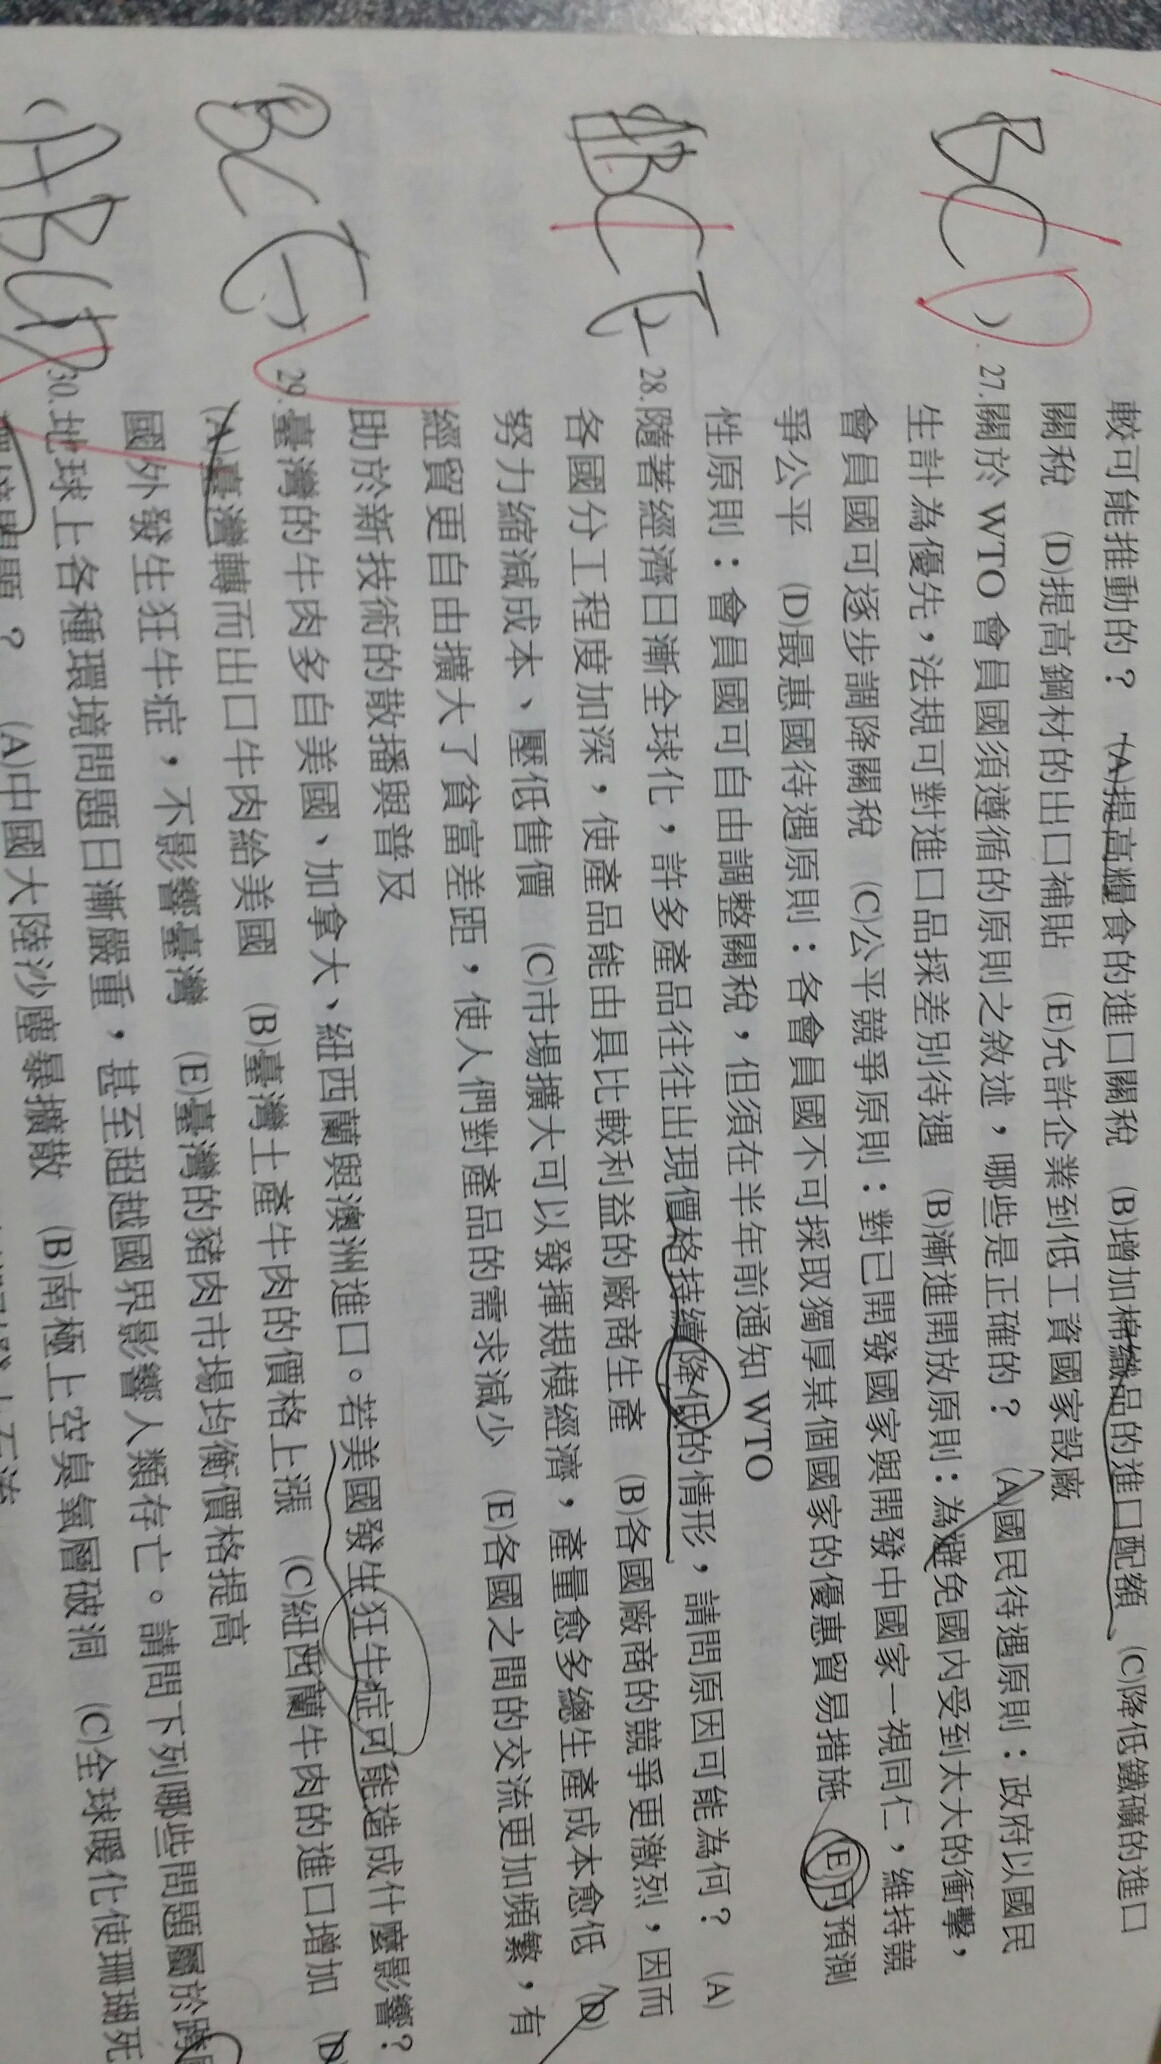 較可能推動的？ (A)提高糧食的進口關稅 (B)增加棉織品的進口配額 (C)降低鐵礦的進口
關稅 (D)提高鋼材的出口補貼 (E)允許企業到低工資國家設廠
BCD
）27.關於 WTO 會員國須遵循的原則之敘述，哪些是正確的？ (A)國民待遇原則：政府以國民
生計為優先，法規可對進口品採差別待遇 (B)漸進開放原則：為避免國內受到太大的衝擊，
會員國可逐步調降關稅 (C)公平競爭原則：對已開發國家與開發中國家一視同仁，維持競
爭公平 (D)最惠國待遇原則：各會員國不可採取獨厚某個國家的優惠貿易措施 (E)可預測
性原則：會員國可自由調整關稅，但須在半年前通知 WTO
ABCE
28.隨著經濟日漸全球化，許多產品往往出現價格持續降低的情形，請問原因可能為何？ (A)
各國分工程度加深，使產品能由具比較利益的廠商生產 (B)各國廠商的競爭更激烈，因而
努力縮減成本、壓低售價 (C)市場擴大可以發揮規模經濟，產量愈多總生產成本愈低 (D)
經貿更自由擴大了貧富差距，使人們對產品的需求減少 (E)各國之間的交流更加頻繁，有
助於新技術的散播與普及
BCE
）29.臺灣的牛肉多自美國、加拿大、紐西蘭與澳洲進口。若美國發生狂牛症可能造成什麼影響？
(A)臺灣轉而出口牛肉給美國 (B)臺灣土產牛肉的價格上漲 (C)紐西蘭牛肉的進口增加 (D)
國外發生狂牛症，不影響臺灣 (E)臺灣的豬肉市場均衡價格提高
（ABCD
30.地球上各種環境問題日漸嚴重，甚至超越國界影響人類存亡。請問下列哪些問題屬於跨國
問題？ (A)中國大陸沙塵暴擴散 (B)南極上空臭氧層破洞 (C)全球暖化使珊瑚死